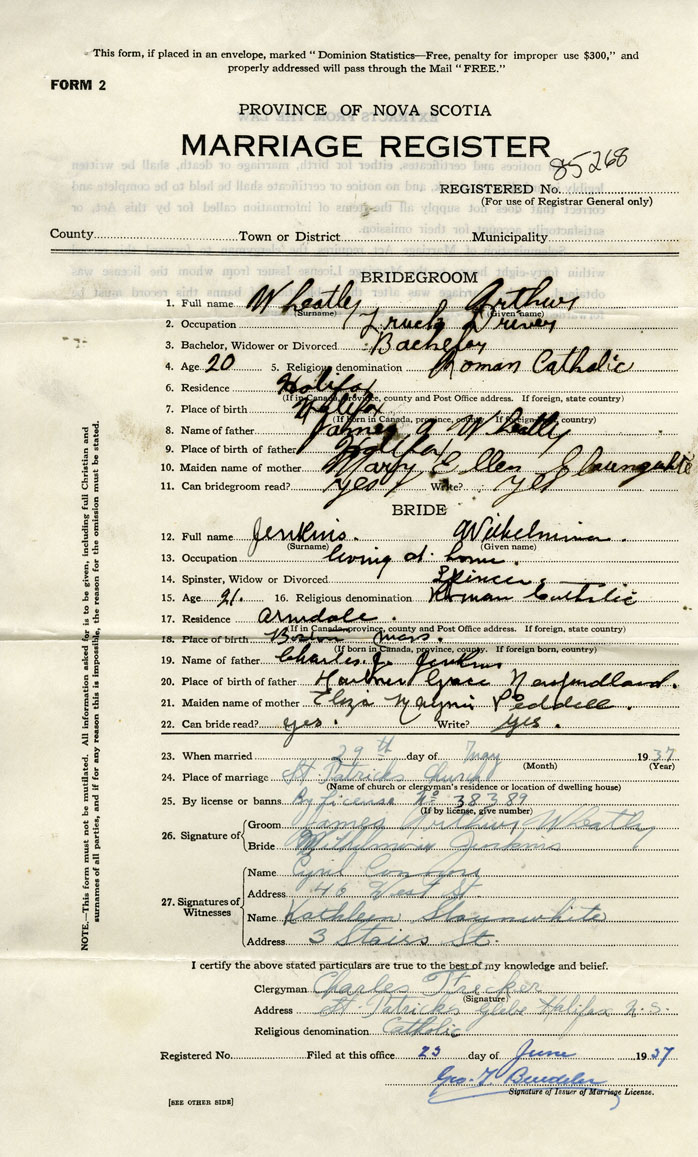 This form, if placed in an envelope, marked "Dominion Statistics—Free, penalty for improper use $300," and
properly addressed will pass through the Mail "FREE."
FORM 2
PROVINCE OF NOVA SCOTIA
MARRIAGE REGISTER
85268
REGISTERED No.
(For use of Registrar General only)
County Town or District Municipality
BRIDEGROOM
1. Full name Wheatley Arthur
(Surname) (Given name)
2. Occupation Truck Driver
3. Bachelor, Widower or Divorced Bachelor
4. Age 20 5. Religious denomination Roman Catholic
6. Residence Halifax
(If in Canada, province, county and Post Office address. If foreign, state country)
7. Place of birth Halifax
(If born in Canada, province, county. If foreign born, country)
8. Name of father James A Wheatly
9. Place of birth of father Halifax
10. Maiden name of mother Mary Ellen
11. Can bridegroom read? yes Write? yes
BRIDE
12. Full name Jenkins. Wilhelmina.
(Surname) (Given name)
13. Occupation living at home.
14. Spinster, Widow or Divorced
15. Age 21. 16. Religious denomination Roman Catholic
17. Residence Armdale.
(If in Canada, province, county and Post Office address. If foreign, state country)
18. Place of birth Boston Mass.
(If born in Canada, province, county. If foreign born, country)
19. Name of father Charles J. Jenkins
20. Place of birth of father Harbour Grace Newfundland.
21. Maiden name of mother Eliza Peddell.
22. Can bride read? yes. Write? yes.
23. When married 29th day of May 1937
(Month) (Year)
24. Place of marriage St Patricks Church
(Name of church or clergyman's residence or location of dwelling house)
25. By license or banns By License No 38389
(If by license, give number)
26. Signature of Groom James Arthur Wheatley
Bride Wilhelmina Jenkins
27. Signatures of Witnesses Name Cyril Connors
Address 40 West St.
Name Kathleen Slaunwhite
Address 3 Stairs St.
I certify the above stated particulars are true to the best of my knowledge and belief.
Clergyman Charles
(Signature)
Address St. Patricks Glebe Halifax N.S.
Religious denomination Catholic
Registered No. Filed at this office 23 day of June 1937
Geo.
Signature of Issuer of Marriage License.
[SEE OTHER SIDE]
NOTE.—This form must not be mutilated. All information asked for is to be given, including full Christian and
surnames of all parties, and if for any reason this is impossible, the reason for the omission must be stated.